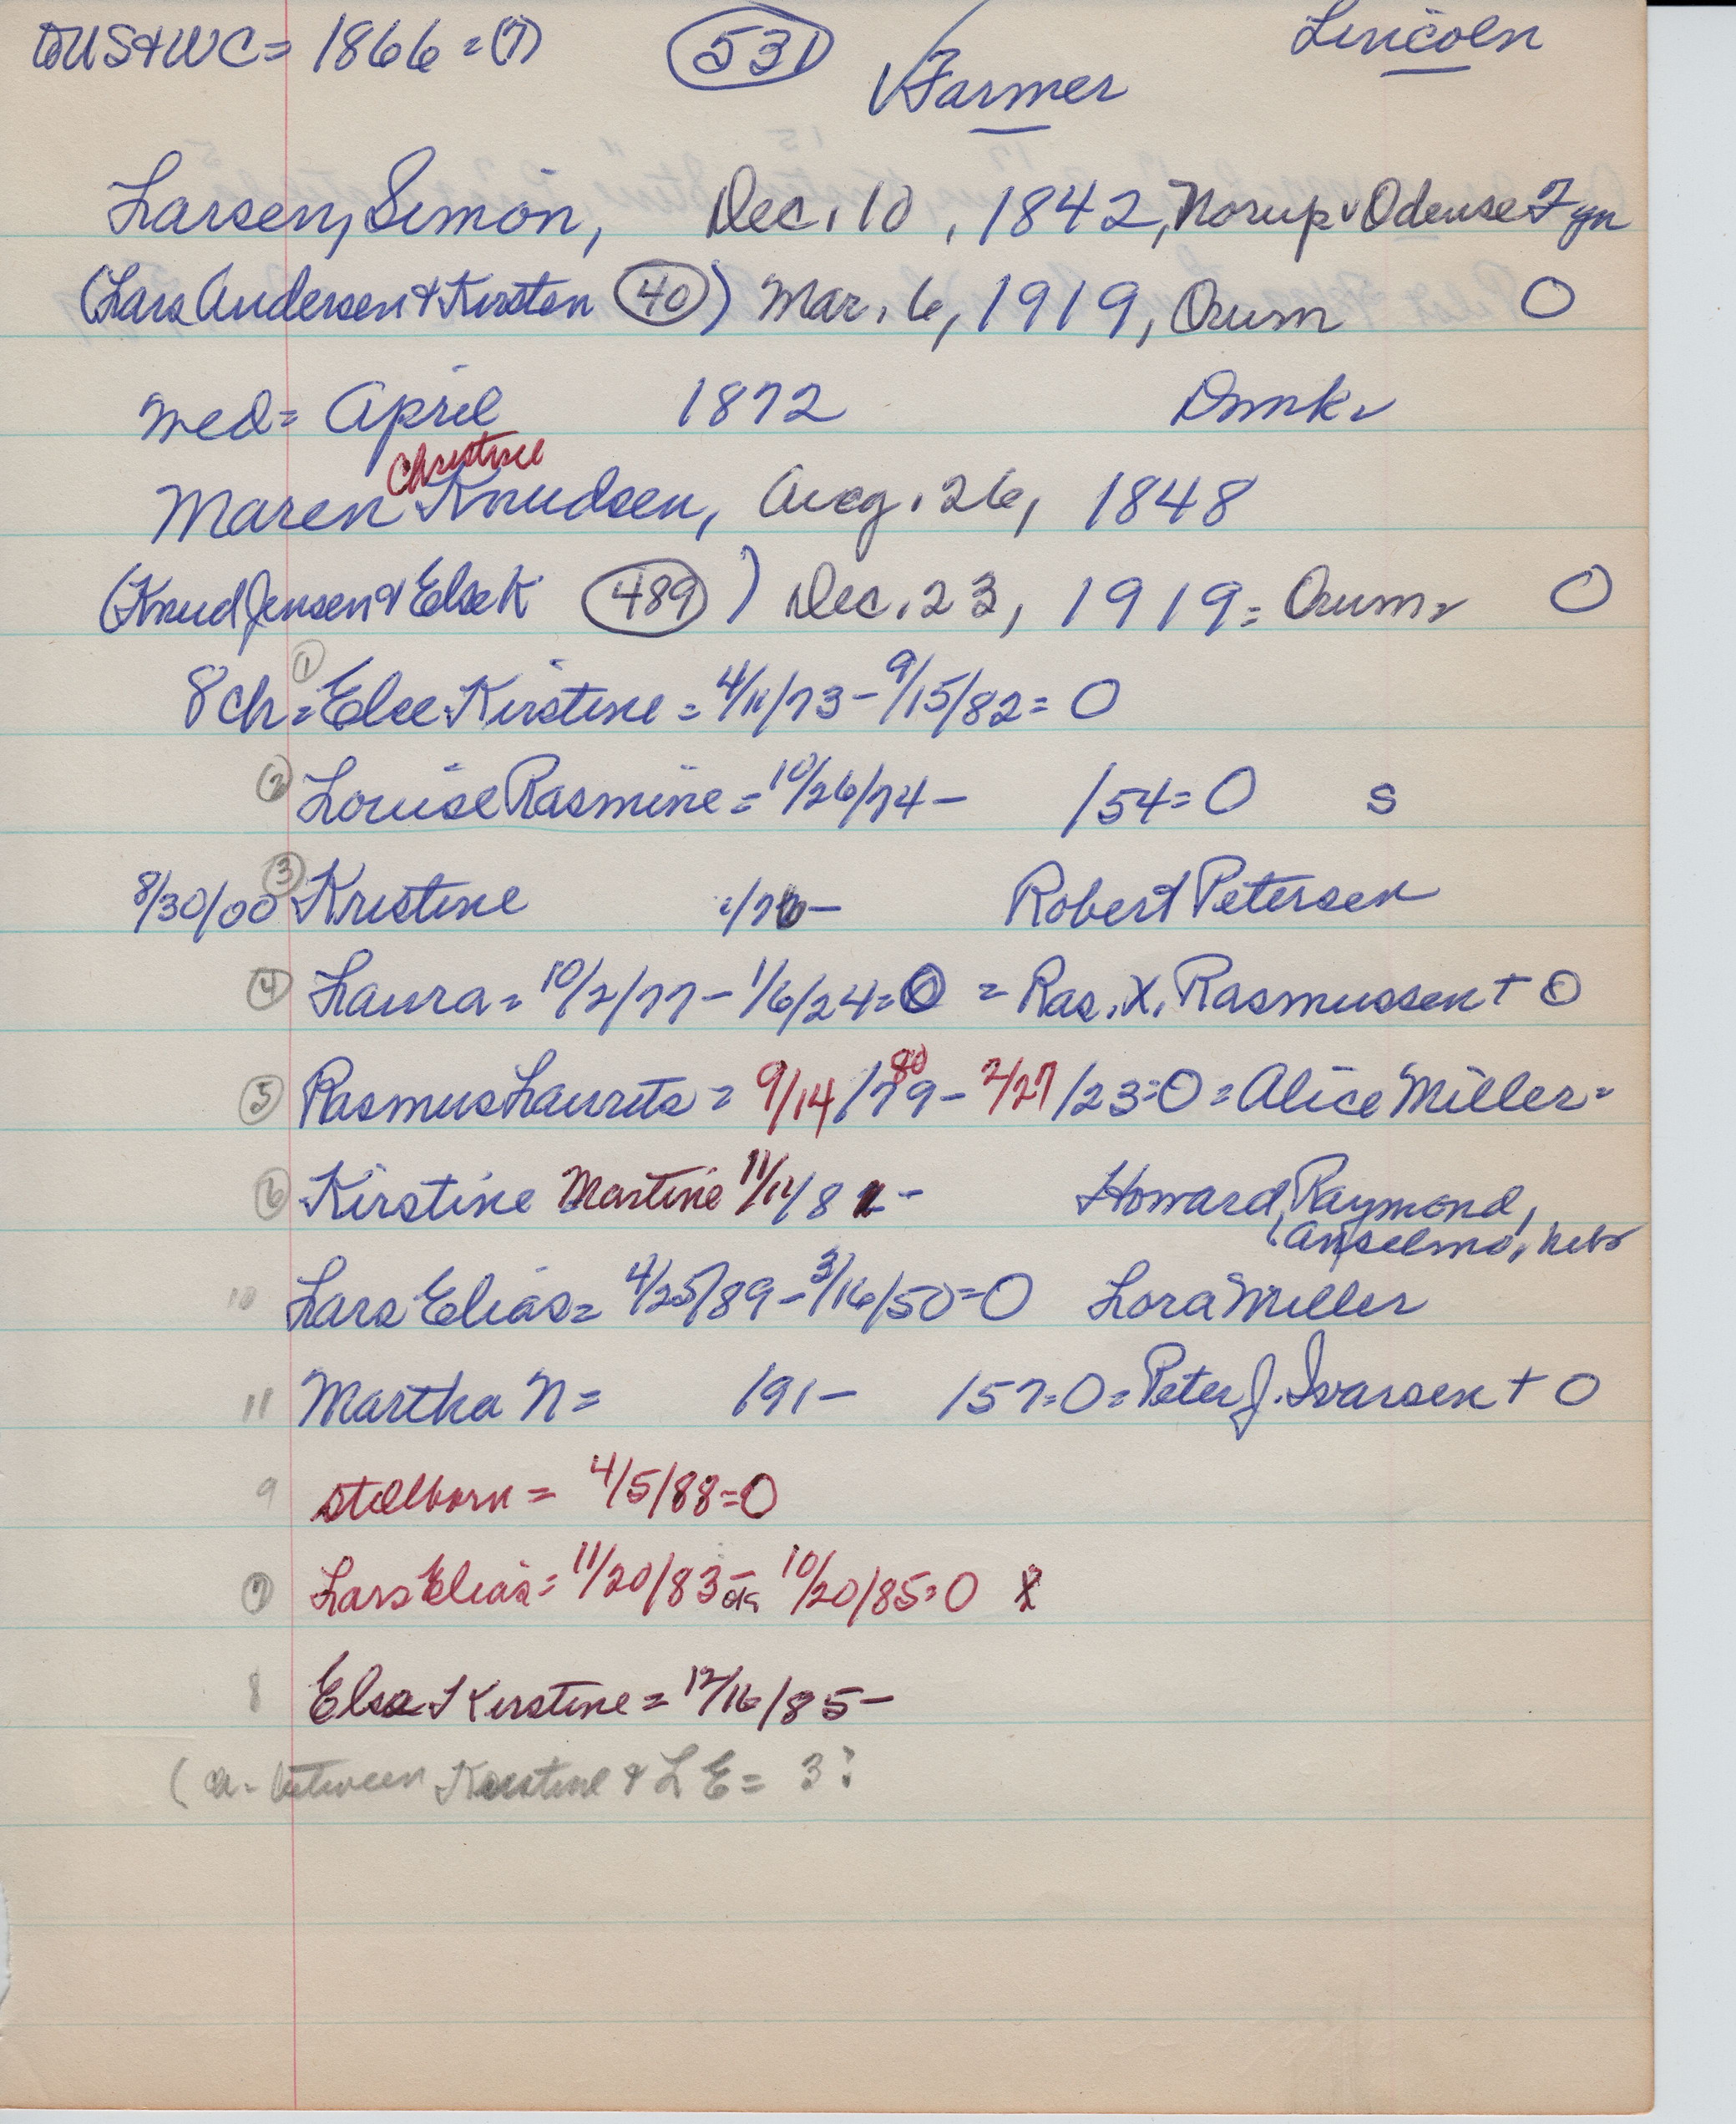 toUS&WC= 1866=(7) 531 Lincoln
✓Farmer
Larsen, Simon, Dec. 10, 1842, Norup v Odense Fyn
(Lars Andersen & Kirsten 40) Mar. 6, 1919, Orum O
med= April 1872 Dmk
Christine
Maren Knudsen, Aug. 26, 1848
(Knud Jensen & Else K 489) Dec. 23, 1919= Orum O
8 ch= 1 Else Kirstine = 4/11/73-9/15/82= O
2 Louise Rasmine = 10/26/74- /54= O s
8/30/00 3 Kristine /76- Robert Petersen
4 Laura= 10/2/77-1/6/24=O = Ras. X. Rasmussen + O
80
5 Rasmus Laurits = 9/14/79-2/27/23=O=Alice Miller=
6 Kirstine Martine 11/12/82- Howard Raymond,
Anselmo, Nebr
10 Lars Elias= 4/25/89-3/16/50=O Lora Miller
11 Martha N= /91- /57=O=Peter J. Ivarsen + O
9 stillborn= 4/5/88=O
7 Lars Elias= 11/20/83- 10/20/85=O
8 Elsa Kirstine= 12/16/85-
(a- between Kirstine & L E = 3?